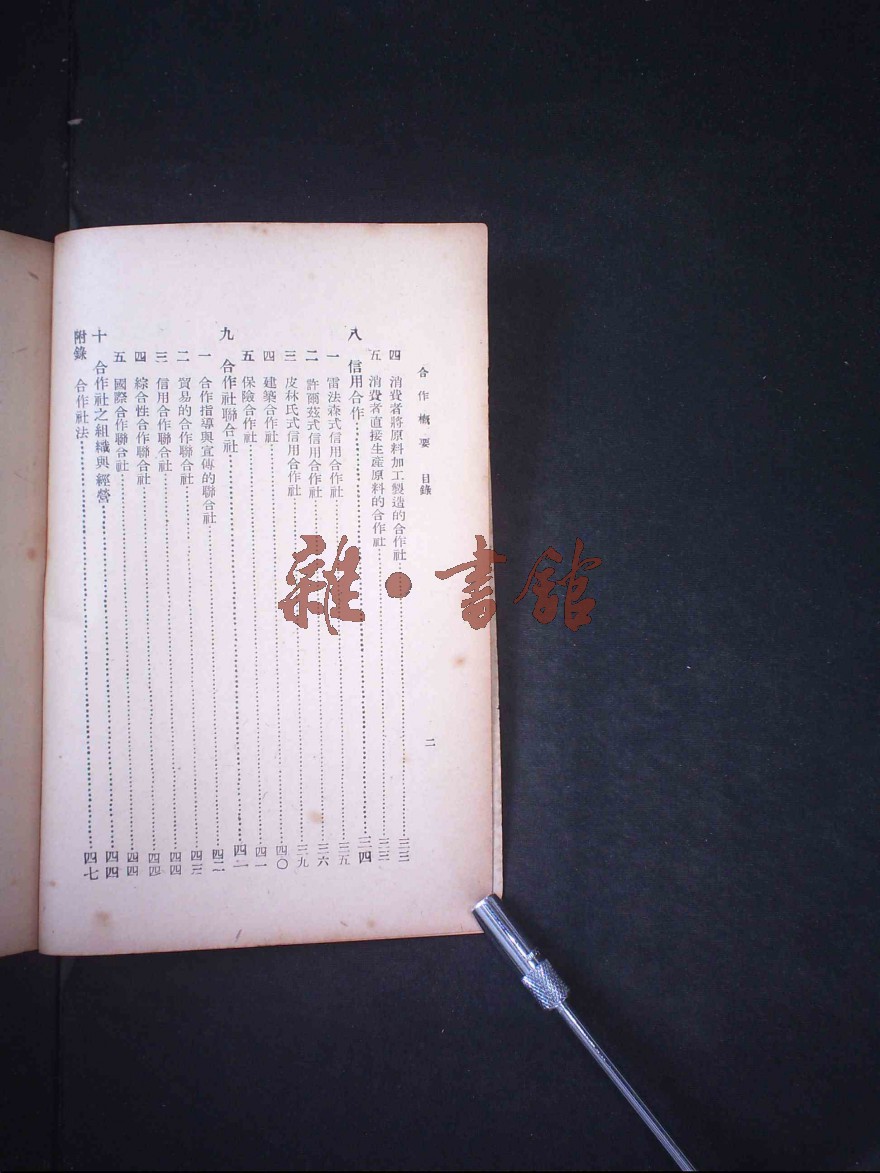 合作概要 目錄 二
四 消費者將原料加工製造的合作社 三三
五 消費者直接生產原料的合作社 三三
八 信用合作 三四
一 雷法森式信用合作社 三五
二 許爾茲式信用合作社 三六
三 皮林氏式信用合作社 三九
四 建築合作社 四〇
五 保險合作社 四一
九 合作社聯合社 四二
一 合作指導與宣傳的聯合社 四二
二 貿易的合作聯合社 四三
三 信用合作聯合社 四四
四 綜合性合作聯合社 四四
五 國際合作聯合社 四四
十 合作社之組織與經營 四四
附錄 合作社法 四七
雜·書館